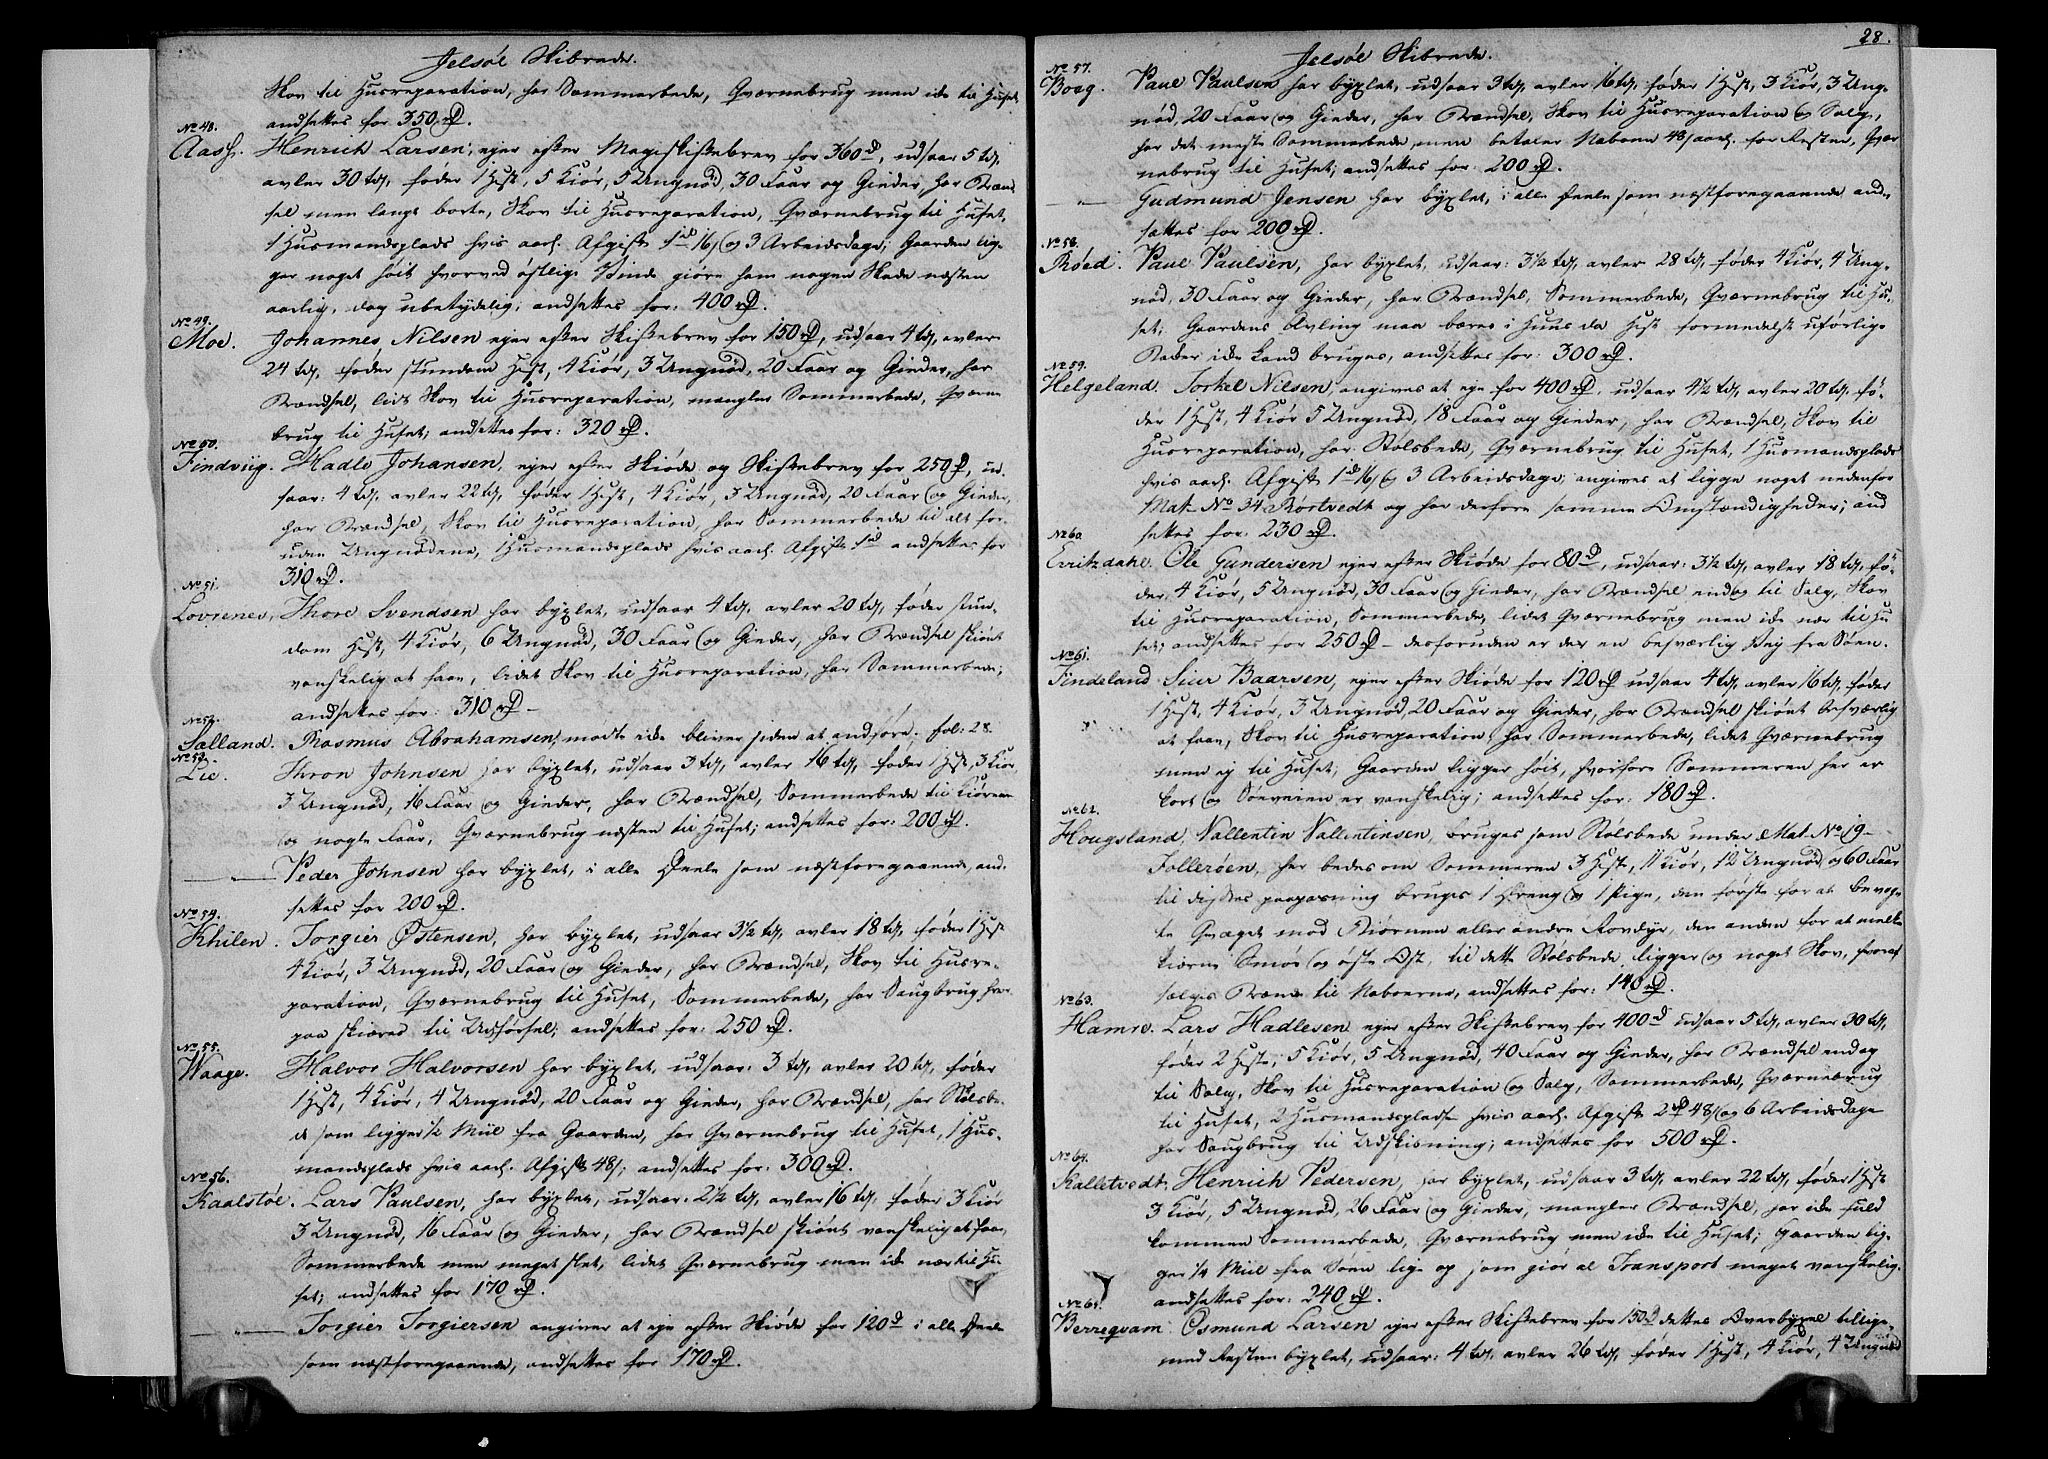 Jelsøe Skibrede.
Skov til Husreparation, har Sommerbede, Qværnebrug men ide til Huset,
andsettes for 350 rd.
No 48.
Aash. Henrich Larsen, ejer efter Mageskiftebrev for 360 rd, udsaar 5 td,
avler 30 td, føder 1 Hest, 5 Kiør, 5 Ungnød, 30 Faar og Gieder, har Brænd-
sel men langt borte, Skov til Husreparation, Qværnebrug til Huset,
1 Husmandsplads hvis aarl. Afgift 1 rd 16 s og 3 Arbeidsdage; Gaarden lig-
ger noget høit hvorved østlige Vinde giøre ham nogen Skade næsten
aarlig, dog ubetydelig; andsettes for: 400 rd.
No 49.
Moe. Johannes Nilsen ejer efter Skiftebrev for 150 rd, udsaar 4 td, avler
24 td, føder stundom Hest, 4 Kiør, 3 Ungnød, 20 Faar og Gieder, har
Brændsel, lidt Skov til Husreparation, mangler Sommerbede, Qværne
brug til Huset; andsettes for: 320 rd.
No 50.
Findviig. Hadle Johansen, ejer efter Skiøde og Skiftebrev for 250 rd, ud-
saar: 4 td, avler 22 td, føder 1 Hest, 4 Kiør, 3 Ungnød, 20 Faar og Gieder,
har Brændsel, Skov til Husreparation, har Sommerbede til alt for-
uden Ungnødene, 1 Husmandsplads hvis aarl. Afgift 1 rd andsettes for
310 rd.
No 51.
Lovrenes, Thore Svendsen har byxlet, udsaar 4 td, avler 20 td, føder stun-
dom Hest, 4 Kiør, 6 Ungnød, 30 Faar og Gieder, har Brændsel skiønt
vanskelig at faae, lidet Skov til Husreparation, har Sommerbede;
andsettes for: 310 rd -
No 52.
Sælland. Rasmus Abrahamsen, mødte ide bliver siden at andføre, fol: 28.
No 53.
Lie. Thron Johnsen har byxlet, udsaar 3 td, avler 16 td, føder 1 Hest, 3 Kiør,
3 Ungnød, 16 Faar og Gieder, har Brændsel, Sommerbede til Kiørene
og nogle Faar, Qværnebrug næsten til Huset; andsettes for: 200 rd.
— „ — Peder Johnsen har byxlet, i alle Deele som næstforegaaende, and-
settes for 200 rd.
No 54.
Khilen. Torgier Østensen, har byxlet, udsaar 3½ td, avler 18 td, føder 1 Hest
4 Kiør, 3 Ungnød, 20 Faar og Gieder, har Brændsel, Skov til Husre-
paration, Qværnebrug til Huset, Sommerbede, har Saugbrug hvor-
paa skiæres til Udførsel; andsettes for: 250 rd.
No 55.
Waage. Halvor Halvorsen har byxlet, udsaar: 3 td, avler 20 td, føder
1 Hest, 4 Kiør, 4 Ungnød, 20 Faar og Gieder, har Brændsel, har Stølsbe-
de som ligger ½ Miil fra Gaarden, har Qværnebrug til Huset, 1 Hus-
mandsplads hvis aarl. Afgift 48 s; andsettes for: 300 rd.
No 56.
Kaalstøe. Lars Paulsen, har byxlet, udsaar: 2½ td, avler 16 td, føder 3 Kiør
3 Ungnød, 16 Faar og Gieder, har Brændsel skiønt vanskelig at faae,
Sommerbede men meget slet, lidet Qværnebrug men ide nær til Hu-
set; andsettes for 170 rd.
— „ — Torgier Torgiersen angiver at eje efter Skiøde for 120 rd i alle Deele
som næstforegaaende, andsettes for 170 rd.
28.
Jelsøe Skibrede.
No 57.
Boeg. Paul Paulsen har byxlet, udsaar 3 td, avler 16 td, føder 1 Hest, 3 Kiør, 3 Ung-
nød, 20 Faar og Gieder, har Brændsel, Skov til Husreparation og Salg,
har det meste Sommerbede, men betaler Naboen 48 s aarl. for Resten, Qvær
nebrug til Huset; andsettes for: 200 rd.
— „ — Gudmund Jensen har byxlet, i alle Deele som næstforegaaende and-
settes for 200 rd.
No 58.
Røed. Paul Paulsen, har byxlet, udsaar: 3½ td, avler 28 td, føder 4 Kiør, 4 Ung-
nød, 30 Faar og Gieder, har Brændsel, Sommerbede, Qværnebrug til Hu-
set; Gaardens Avling maa bæres i Huus da Hest formedelst uførlige
Bakker ide kand bruges, andsettes for: 300 rd.
No 59.
Helgeland. Torkel Nilsen, angives at eje for 400 rd, udsaar 4½ td, avler 20 td, fø-
der 1 Hest, 4 Kiør 5 Ungnød, 18 Faar og Gieder, har Brændsel, Skov til
Husreparation, har Stølsbede, Qværnebrug til Huset, 1 Husmandsplads
hvis aarl. Afgift 1 rd 16 s og 3 Arbeidsdage, angives at ligge noget nedenfor
Mat. No 34 Børtvedt og har derfore samme Omstændigheder; and
settes for: 230 rd.
No 60
Evritzdahl. Ole Gundersen ejer efter Skiøde for 80 rd, udsaar: 3½ td, avler 18 td, fø-
der 4 Kiør, 5 Ungnød, 30 Faar og Gieder, har Brændsel endog til Salg, Skov
til Husreparation, Sommerbede, lidet Qværnebrug men ide nær til Hu
set; andsettes for 250 rd - desforuden er der en besværlig Vej fra Søen.
No 61.
Findeland Siur Baarsen, ejer efter Skiøde for 120 rd udsaar 4 td, avler 16 td, føder
1 Hest, 4 Kiør, 3 Ungnød, 20 Faar og Gieder, har Brændsel skiønt besværlig
at faae, Skov til Husreparation, har Sommerbede, lidet Qværnebrug
men ej til Huset; Gaarden ligger høit, hvorfore Sommeren her er
kort og Søeveien er vanskelig; andsettes for: 180 rd.
No 62.
Hougsland, Vallentin Vallentinsen, bruges som Stølsbede under Mat. No 19 -
Tollerøen, her bedes om Sommeren 3 Hest, 11 Kiør, 12 Ungnød og 60 Faar
til disses paapasning bruges 1 Dreng og 1 Pige, den første for at bevog-
te Qvæget mod Biørnen eller andre Rovdyr, den anden for at melke
kiørne Smør og øste Ost, til dette Stølsbede ligger og noget Skov, hvoraf
sælges Brænde til Naboerne, andsettes for: 140 rd.
No 63.
Hamre. Lars Hadlesen ejer efter Skiftebrev for 400 rd udsaar 5 td, avler 30 td,
føder 2 Heste, 5 Kiør, 5 Ungnød, 40 Faar og Gieder, har Brændsel endog
til Salg, Skov til Husreparation og Salg, Sommerbede, Qværnebrug
til Huset, 2 Husmandspladse hvis aarl. Afgift 2 rd 48 s og 6 Arbeidsdage
har Saugbrug til Udskibning; andsettes for 500 rd.
No 64.
Kalletvedt, Henrich Pedersen, har byxlet, udsaar 3 td, avler 22 td, føder 1 Hest
3 Kiør, 5 Ungnød, 26 Faar og Gieder, mangler Brændsel, har ide fuld
kommen Sommerbede, Qværnebrug men ide til Huset; Gaarden lig-
ger ¼ Miil fra Søen lige op som giør al Transport meget vanskelig
andsettes for: 240 rd.
No 65.
Berreqvam Osmund Larsen ejer efter Skiftebrev for 150 rd dettes Overbyxel tillige-
med Resten byxlet, udsaar: 4 td, avler 26 td, føder 1 Hest, 4 Kiør, 4 Ungnød